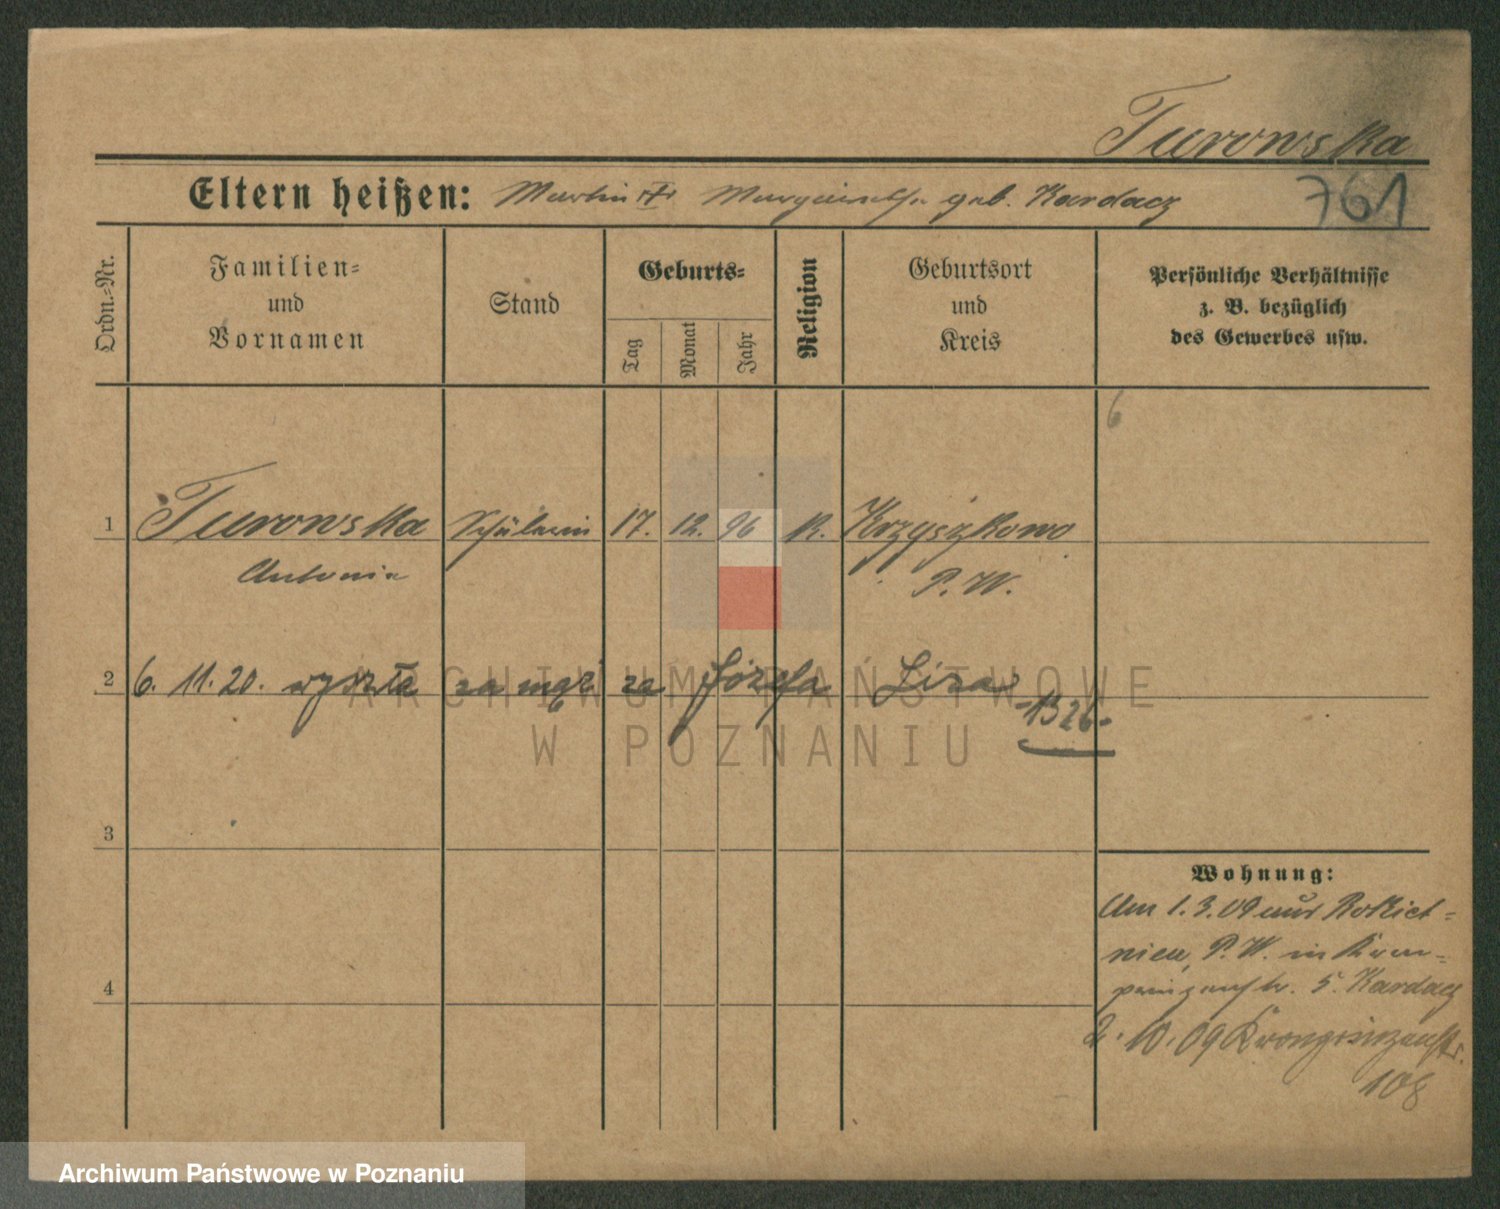 Turowska
Eltern heißen: Martin Margaretha geb. Kardacz
761
Ordn.-Nr.
Familien-
und
Vornamen
Stand
Geburts-
Tag
Monat
Jahr
Religion
Geburtsort
und
Kreis
Persönliche Verhältnisse
z. B. bezüglich
des Gewerbes usw.
6
1 Turowska Schülerin 17. 12. 96 K. Krzyszkowo
Antonia P. W.
2 6. 11. 20. wyszła za mąż za Józefa Liza
-1326-
ARCHIWUM PAŃSTWOWE
W POZNANIU
3
4
Wohnung:
Am 1.3.09 aus Rokiet-
nica, P. W. in Kron-
prinzenstr. 5. Kardacz
2.10.09 Kronprinzenstr.
108
Archiwum Państwowe w Poznaniu